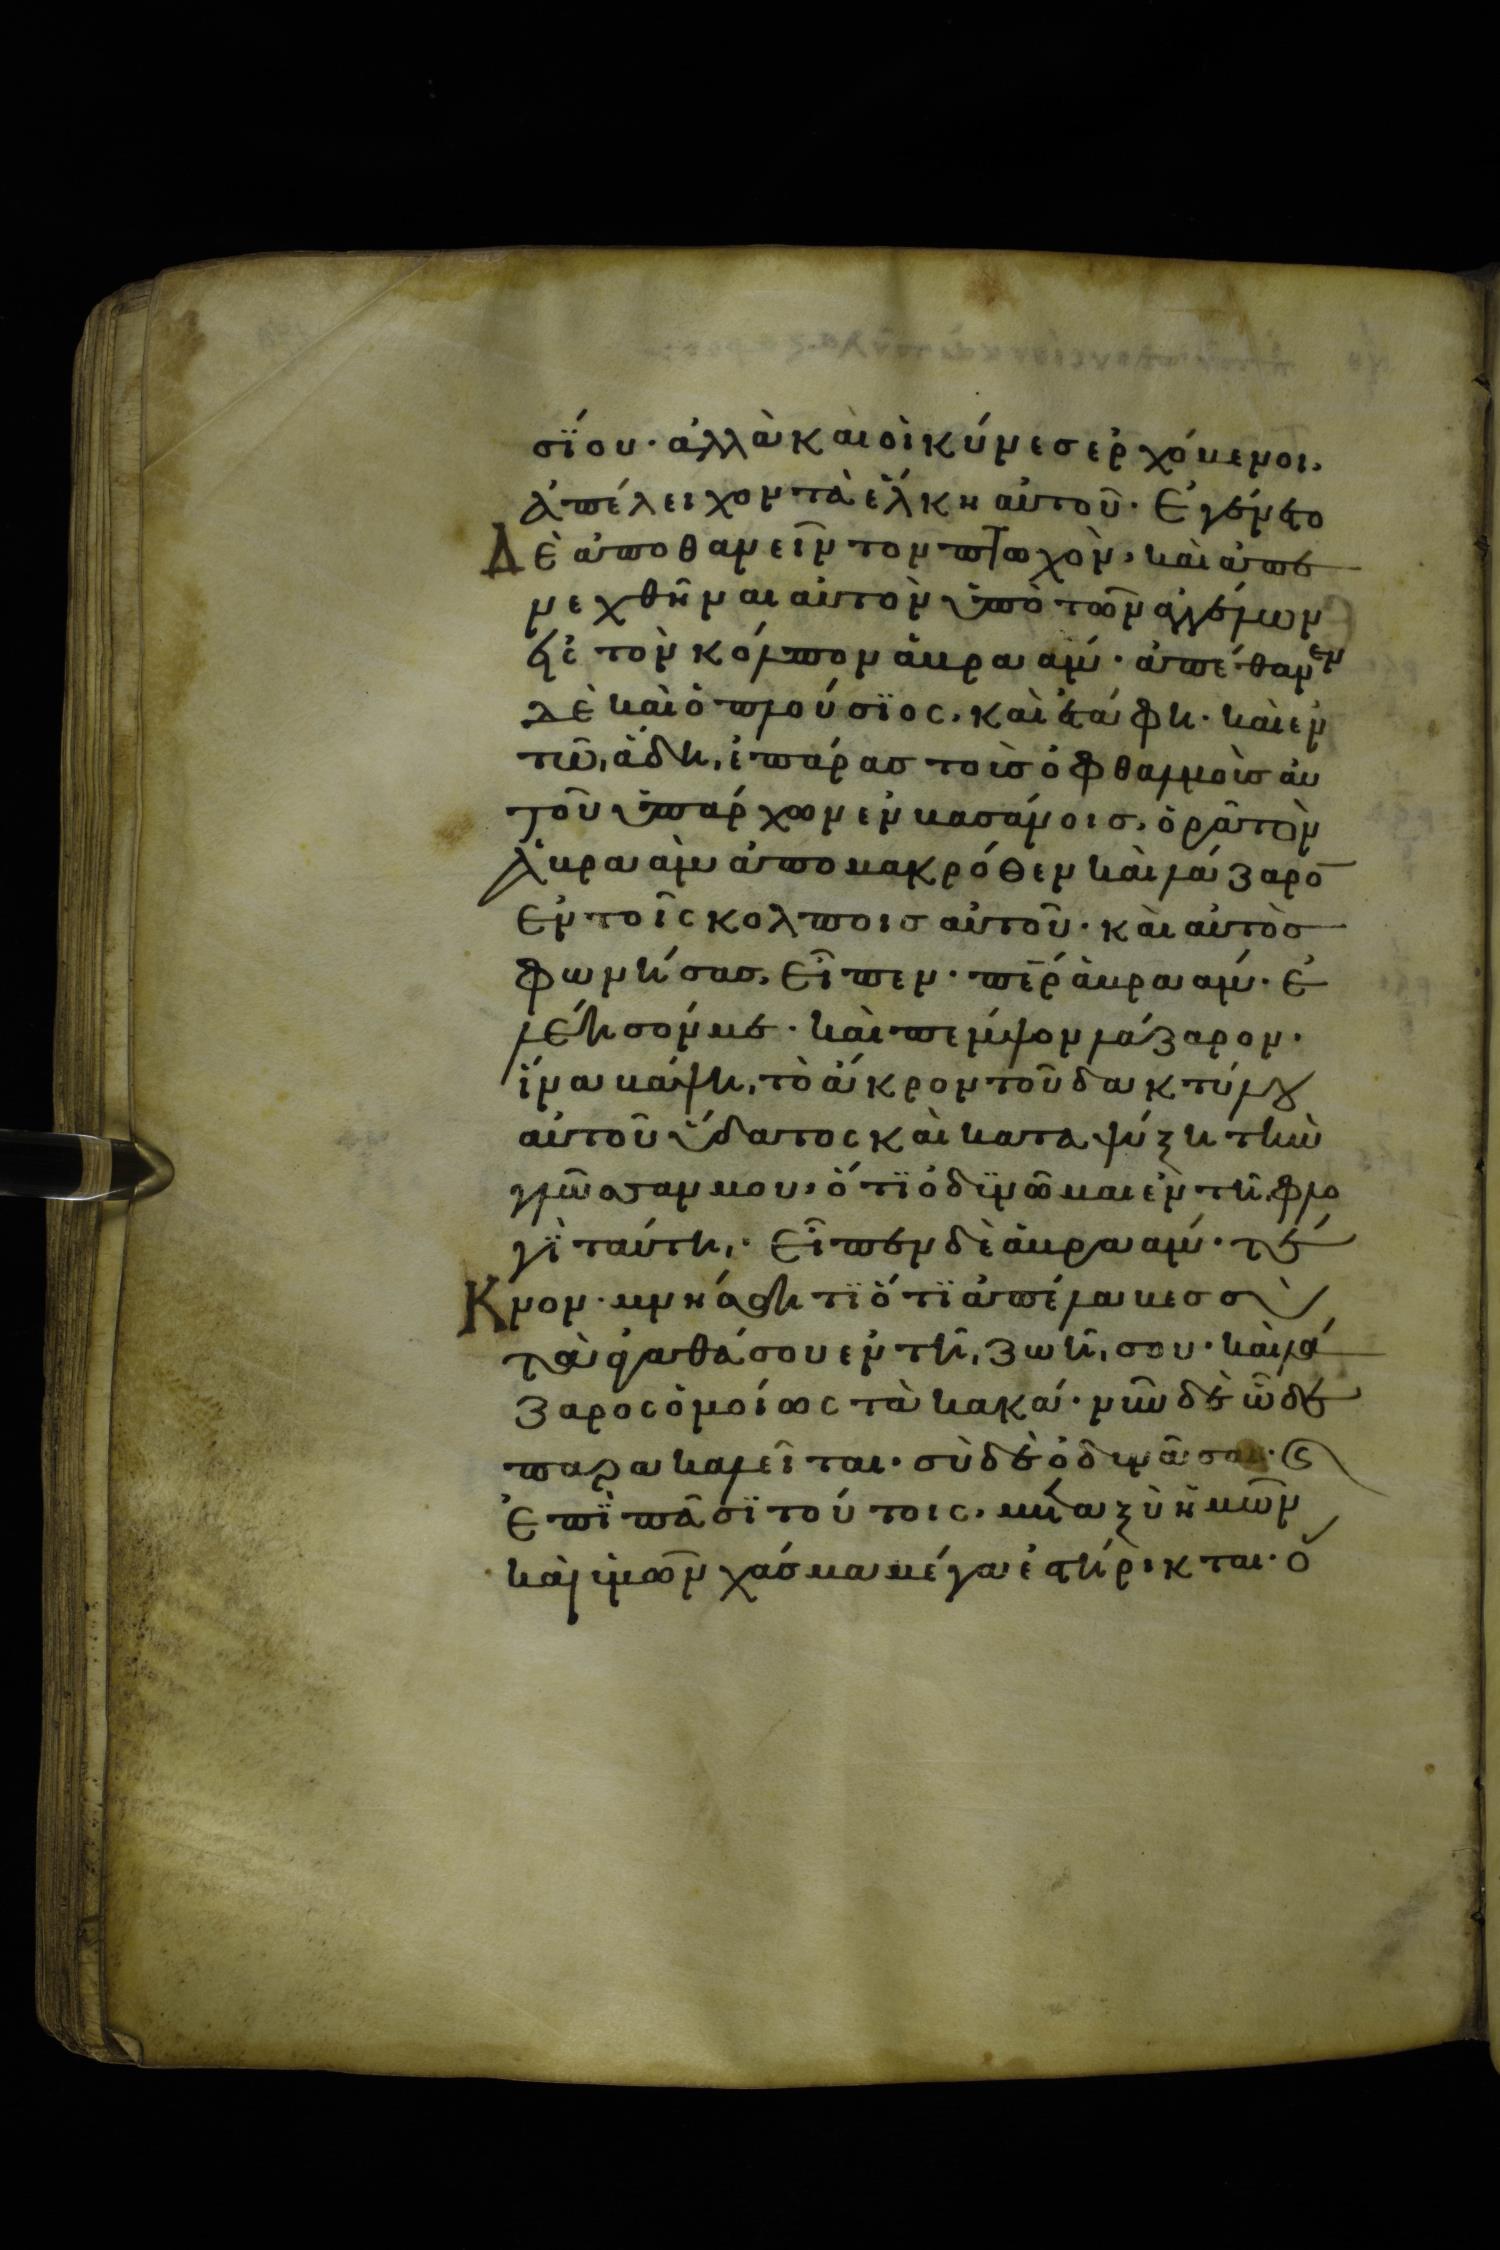 σϊου· ἀλλὰ καὶ οἱ κύνεσ ἐρχόμενοι,
ἀπέλειχον τὰ ἕλκη αὐτοῦ· Ἐγένετο
Δὲ ἀποθανεῖν τον πτωχὸν, καὶ ἀπε
νεχθῆναι αὐτὸν ὑπὸ τῶν ἀγγέλων
εἰς τὸν κόλπον ἀβραάμ· ἀπέθανεν
δὲ καὶ ὁ πλούσϊος, καὶ ἐτάφη· καὶ ἐν
τῶ, ἅδη, ἐπάρασ τοὺσ ὀφθαλμοὺσ αὐ
τοῦ ὑπάρχων ἐν βασάνοισ, ὁρᾶ τὸν
ἀβραὰμ ἀπο μακρόθεν καὶ λάζαρο̅
ἐν τοῖς κολποισ αὐτοῦ· καὶ αὐτὸσ
φωνήσασ, εἶπεν· πε̅ρ ἀβραάμ· ἐ
λέησόν με· καὶ πέμψον λάζαρον·
ἵνα βάψη, τὸ ἄκρον τοῦ δακτύλου
αὐτοῦ ὕδατος καὶ καταψύξη τὴν
γλῶσσαν μου, ὅτϊ ὀδϋνῶμαι ἐν τῆ, φλο
γϊ ταύτη,· Εἶπεν δὲ ἀβραάμ· τέ
Κνον· μνήσθητϊ ὅτϊ ἀπέλαβεσ σὺ
τὰ ἀγαθά σου ἐν τῆ, ζωῆ, σου· καὶ λά
ζαρος ὁμοίως τὰ κακά· νῦν δὲ ὧδε
παρακαλεῖται· σὺ δὲ ὀδυνᾶσαι· ϛ
ἐπῒ πᾶσϊ τούτοις, μεταξὺ ἡμῶν
καὶ ὑμῶν χάσμα μέγα ἐστήρικται· ὅ